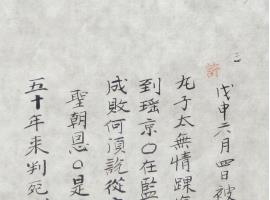 二
戊申六月四日被
尤子太無情踝海
到瑶京〇在監
成敗何湏說從
聖朝恩〇是
五十年来判死